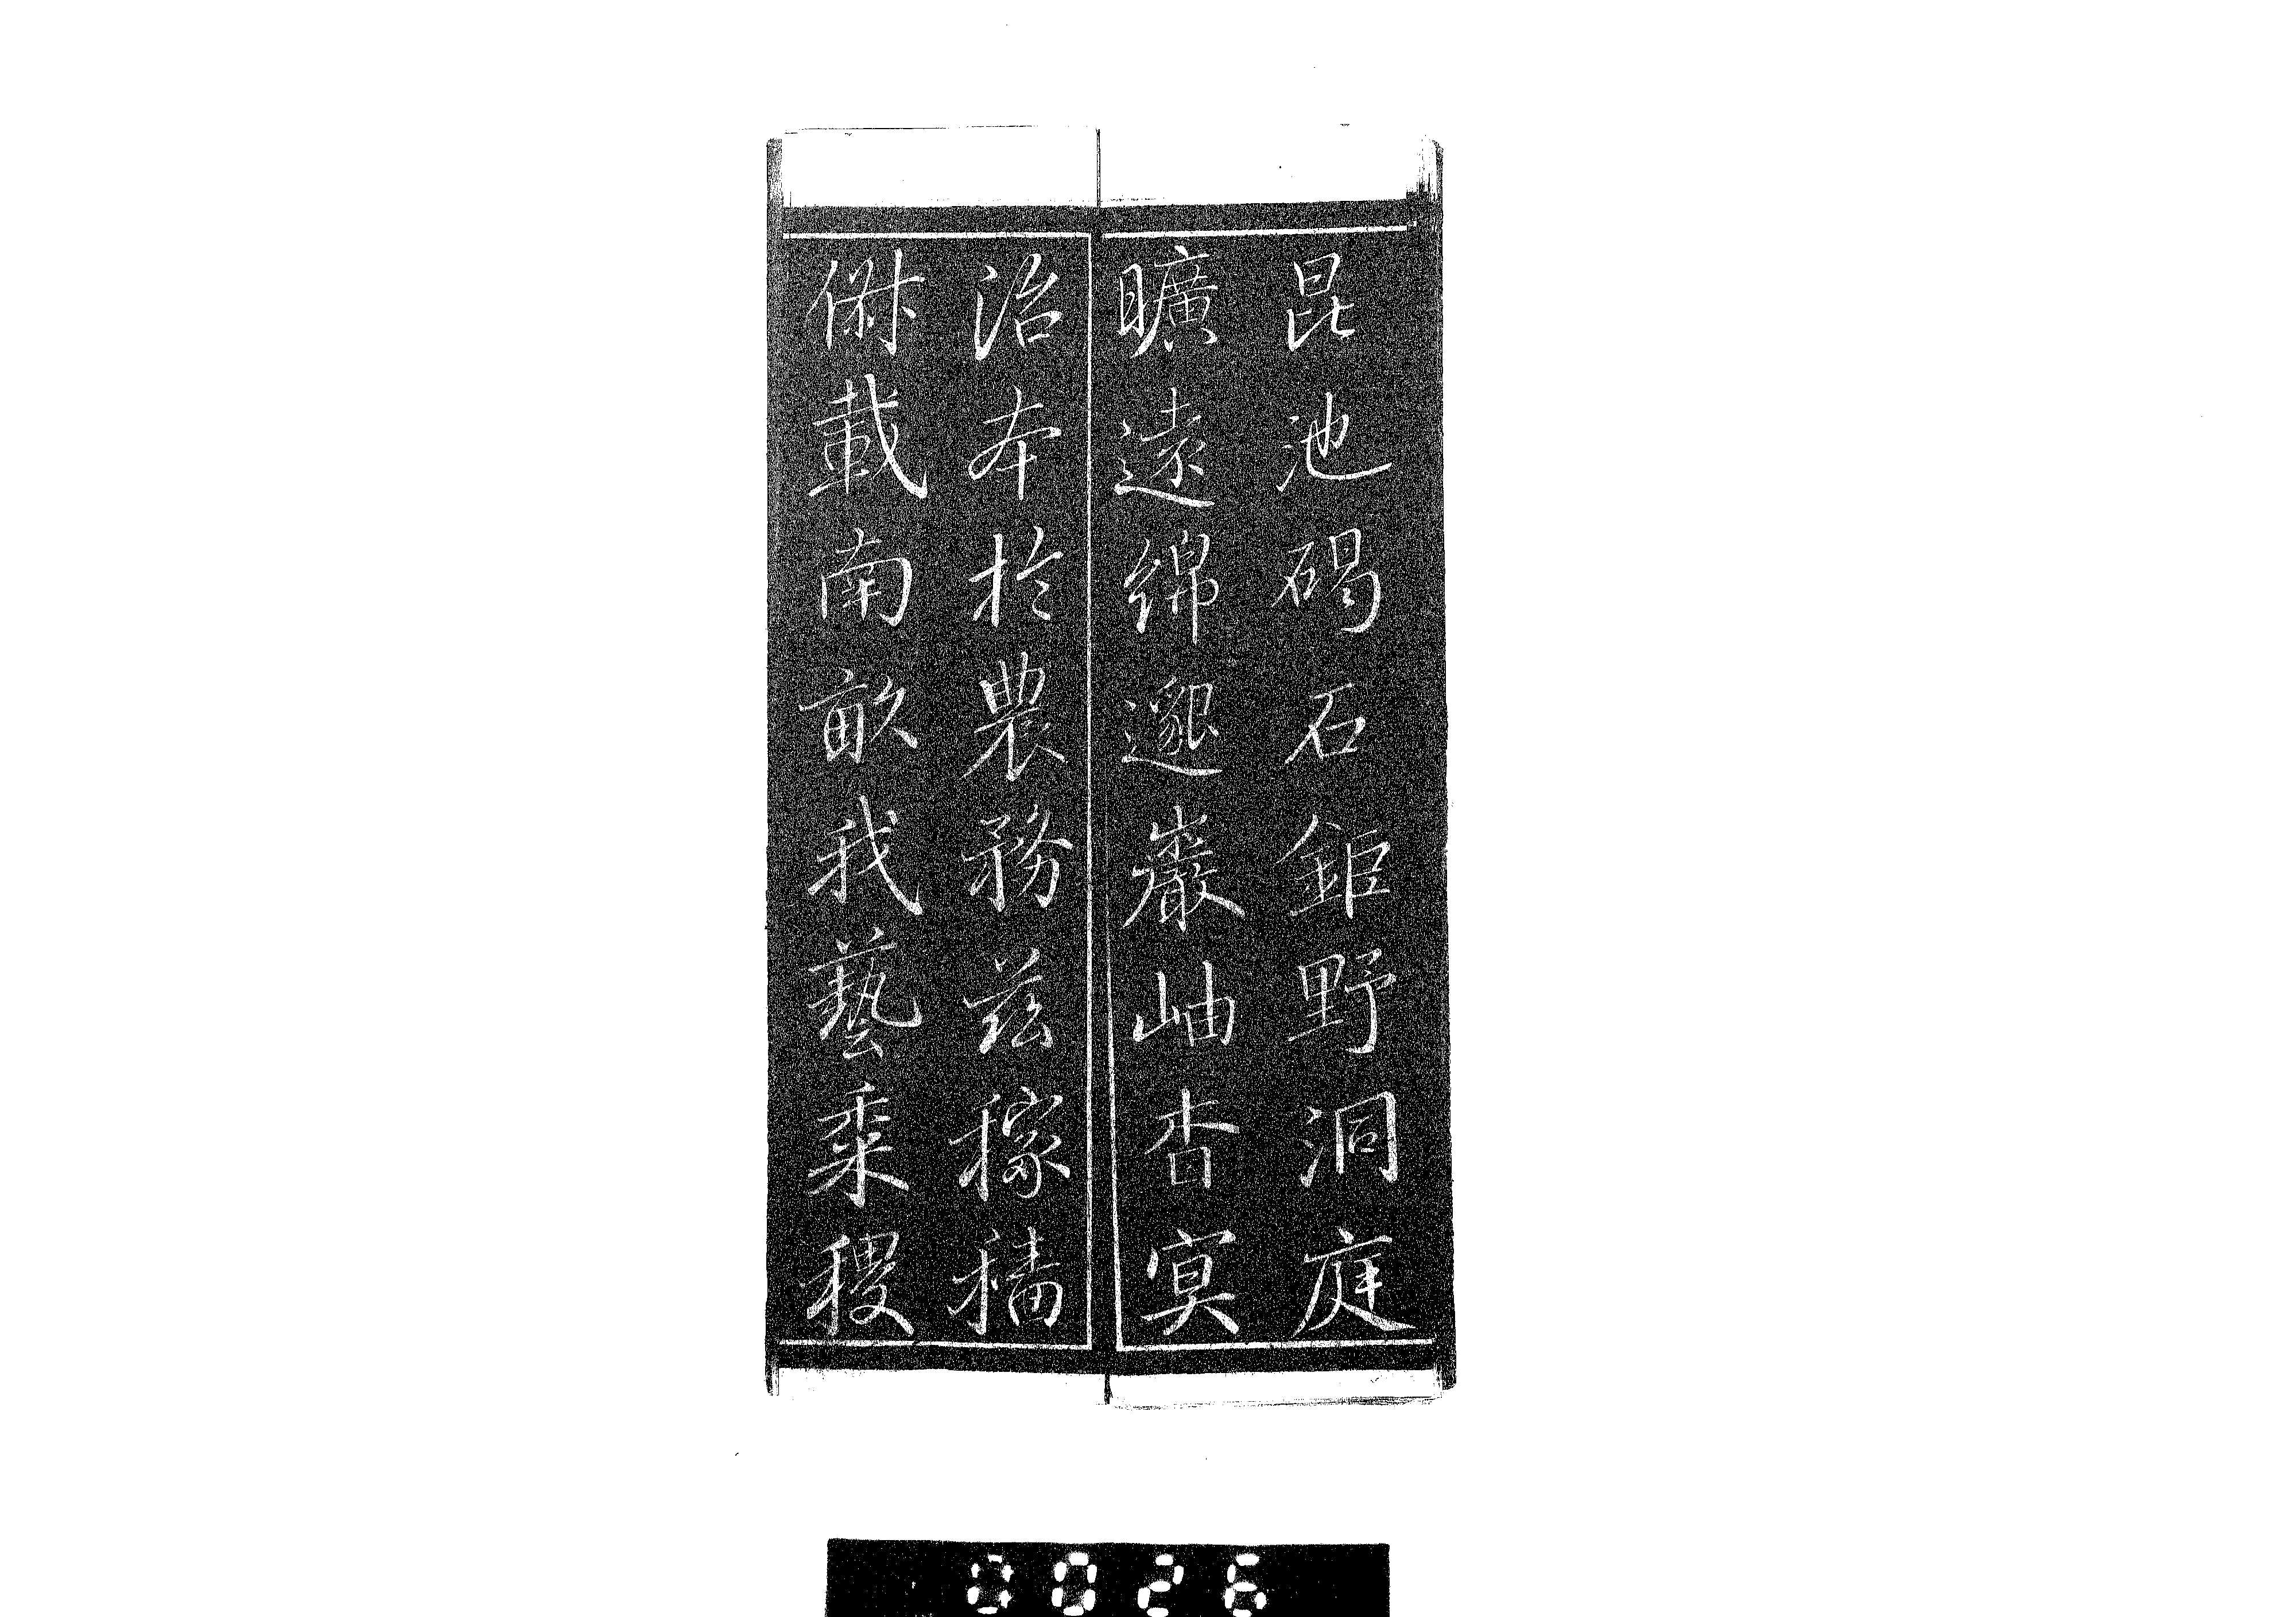 昆池碣石鉅野洞庭
曠遠綿邈巖岫杳冥
治本於農務茲稼穡
俶載南畝我藝黍稷
0026